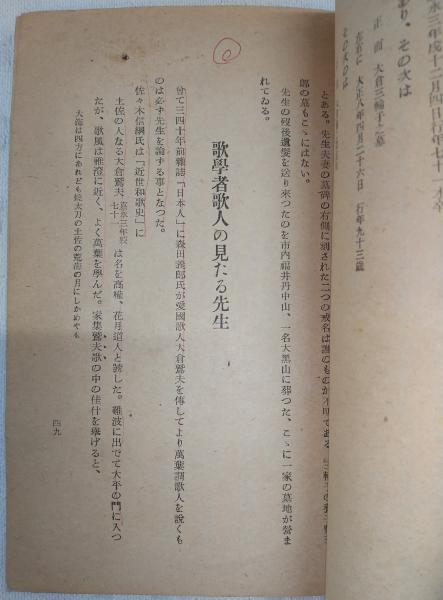 永三年戌十二月四日行年七十一才
あり、その次は
正面 大倉三輪子之墓
左右に 大正八年四月二十六日 行年九十三歳
その次のは
とある。先生夫妻の墓碑の右側に刻された二つの戒名は誰のものか不明である。
郎の墓もこゝにはない。
先生の歿後遺髪を送り來つたのを市內福井丹中山、一名大黑山に葬つた、こゝに一家の墓地が營ま
れてゐる。
歌學者歌人の見たる先生
曾て三四十年前雜誌「日本人」に森田義郎氏が愛國歌人大倉鷲夫を傳してより萬葉調歌人を說くも
のは必ず先生を論ずる事となつた。
佐々木信綱氏は「近世和歌史」に
土佐の人なる大倉鷲夫 嘉永三年歿七十一 は名を高樅、花月道人と號した。難波に出でて大平の門に入つ
たが、歌風は雅澄に近く、よく萬葉を學んだ。家集鷲夫歌の中の佳什を擧げると、
大海は四方にあれども燒太刀の土佐の荒海の月にしかめやも
四九